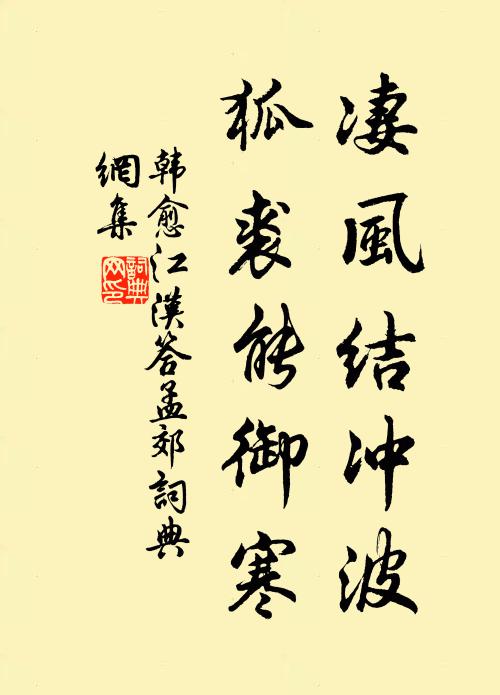 凄風結冲波
狐裘能御寒
韩愈江漢答孟郊詞典
網集
詞典
网印